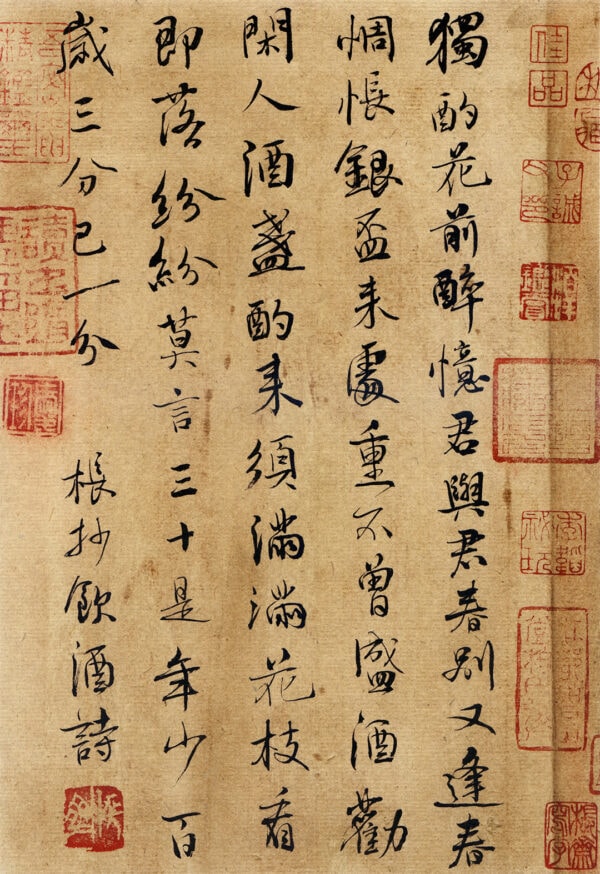 佳品
獨酌花前醉憶君與君春別又逢春
惆悵銀盃来處重不曾盛酒勸
閑人酒盞酌来須滿滿花枝看
即落紛紛莫言三十是年少百
歲三分已一分
棖抄飲酒詩